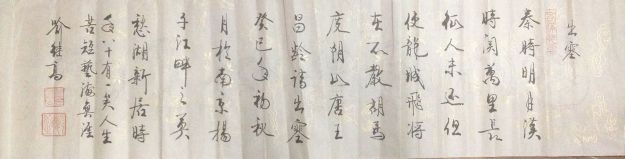 出塞
秦時明月漢
時関萬里長
征人未还但
使龍城飛将
在不教胡馬
度阴山唐王
昌龄诗出塞
癸巳年初秋
月於南京揚
子江畔之莫
愁湖新居時
年八十有一矣人生
苦短藝海無涯